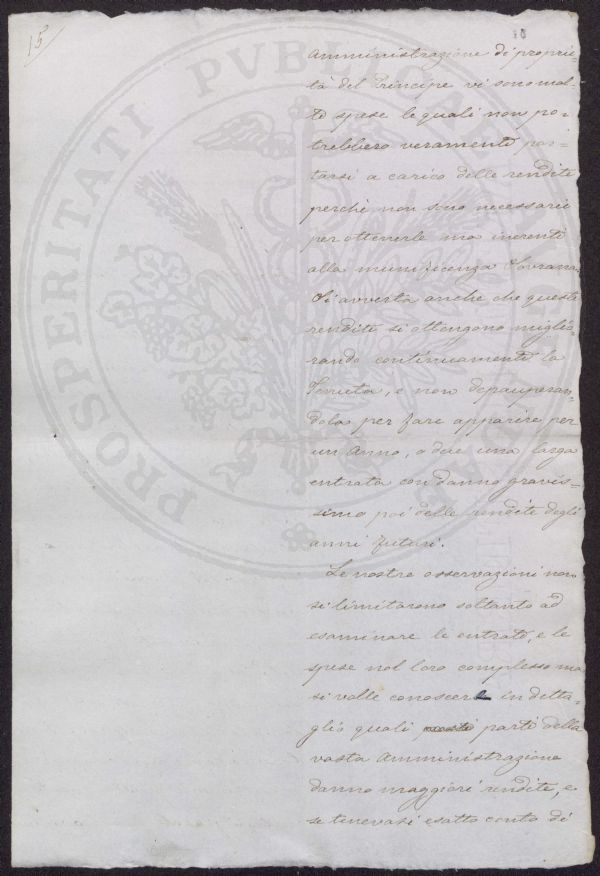 15
10
Amministrazione di proprie-
tà del Principe vi sono mol-
te spese le quali non po-
trebbero veramente por-
tarsi a carico delle rendite
perchè non sono necessarie
per ottenerle ma inerenti
alla munificenza Sovrana.
Si avverta anche che queste
rendite si ottengono miglio-
rando continuamente la
Tenuta, e non depauperan-
dola per fare apparire per
un anno, o due una larga
entrata con danno gravis-
simo poi delle rendite degli
anni futuri.
Le nostre osservazioni non
si limitarono soltanto ad
esaminare le entrate, e le
spese nel loro complesso ma
si volle conoscere in detta-
glio quali parti della
vasta Amministrazione
danno maggiori rendite, e
se tenevasi esatto conto di
PROSPERITATI PVBLICAE